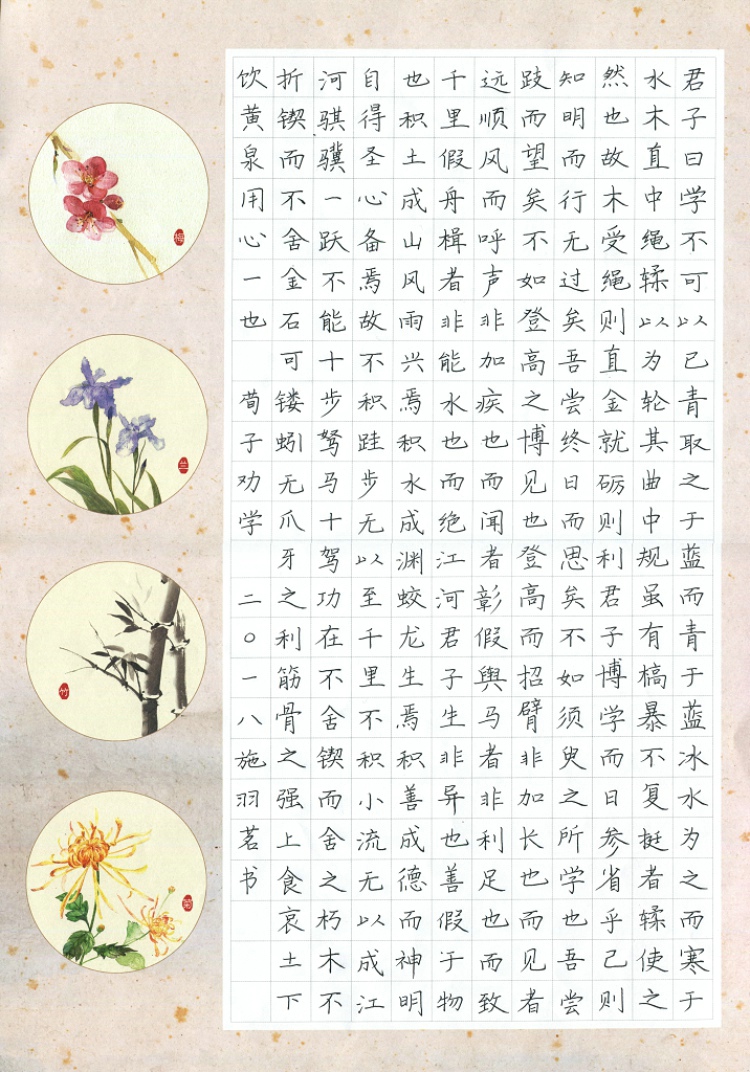 君子曰学不可以已青取之于蓝而青于蓝冰水为之而寒于
水木直中绳𫐓以为轮其曲中规虽有槁暴不复挺者𫐓使之
然也故木受绳则直金就砺则利君子博学而日参省乎己则
知明而行无过矣吾尝终日而思矣不如须臾之所学也吾尝
跂而望矣不如登高之博见也登高而招臂非加长也而见者
远顺风而呼声非加疾也而闻者彰假舆马者非利足也而致
千里假舟楫者非能水也而绝江河君子生非异也善假于物
也积土成山风雨兴焉积水成渊蛟龙生焉积善成德而神明
自得圣心备焉故不积跬步无以至千里不积小流无以成江
河骐骥一跃不能十步驽马十驾功在不舍锲而舍之朽木不
折锲而不舍金石可镂蚓无爪牙之利筋骨之强上食哀土下
饮黄泉用心一也 荀子劝学 二〇一八施羽茗书
梅
兰
竹
菊